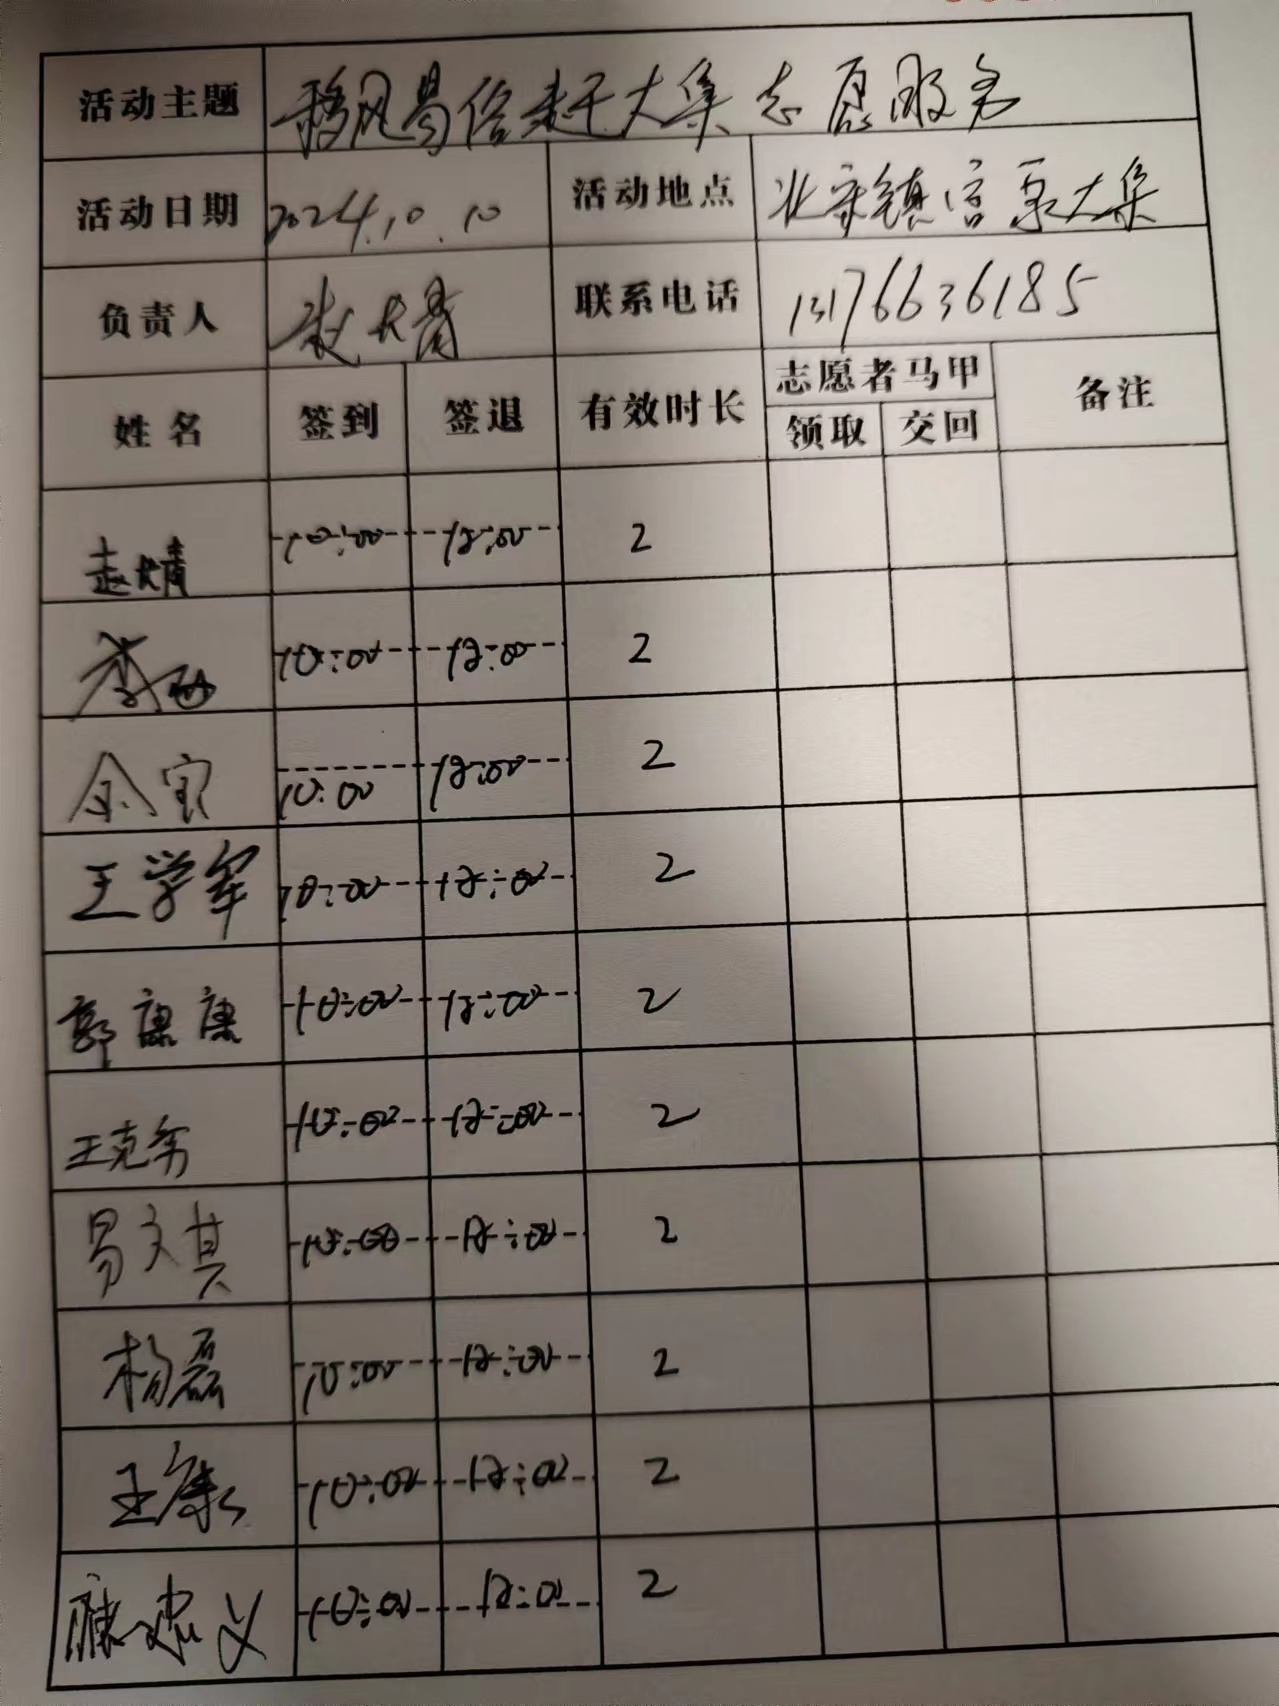 活动主题 移风易俗赶大集志愿服务
活动日期 2024.10.10 活动地点 北宋镇 大集
负责人 联系电话 13176636185
姓名 签到 签退 有效时长 志愿者马甲 备注
领取 交回
10:00 12:00 2
李 10:00 12:00 2
10:00 12:00 2
王学军 10:00 12:00 2
郭康康 10:00 12:00 2
王克 10:00 12:00 2
易文其 10:00 12:00 2
杨磊 10:00 12:00 2
王康 10:00 12:00 2
10:00 12:00 2